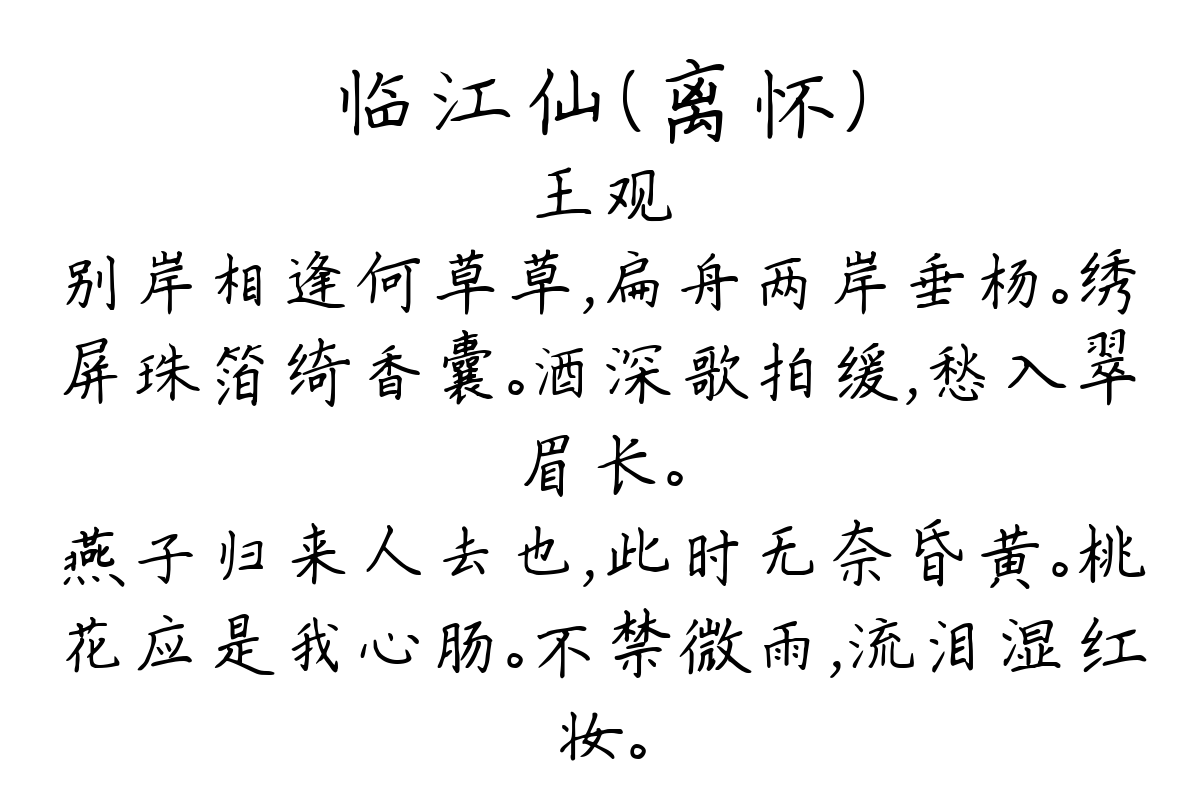 临江仙(离怀)
王观
别岸相逢何草草,扁舟两岸垂杨。绣
屏珠箔绮香囊。酒深歌拍缓,愁入翠
眉长。
燕子归来人去也,此时无奈昏黄。桃
花应是我心肠。不禁微雨,流泪湿红
妆。